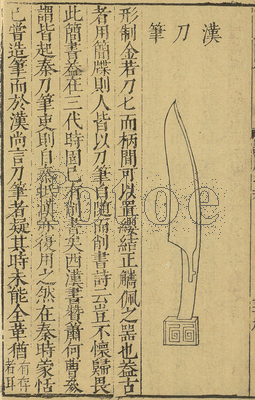 漢刀筆
形制金若刀匕而柄間可以置纓結正觿佩之器也蓋古
者用簡牒則人皆以刀筆自隨而削書詩云豈不懷歸畏
此簡書蓋在三代時固已有削書矣西漢書贊蕭何曹參
謂皆起秦刀筆吏則自秦抵漢亦復用之然在秦時蒙恬
已嘗造筆而於漢尚言刀筆者疑其時未能全革猶有存者耳